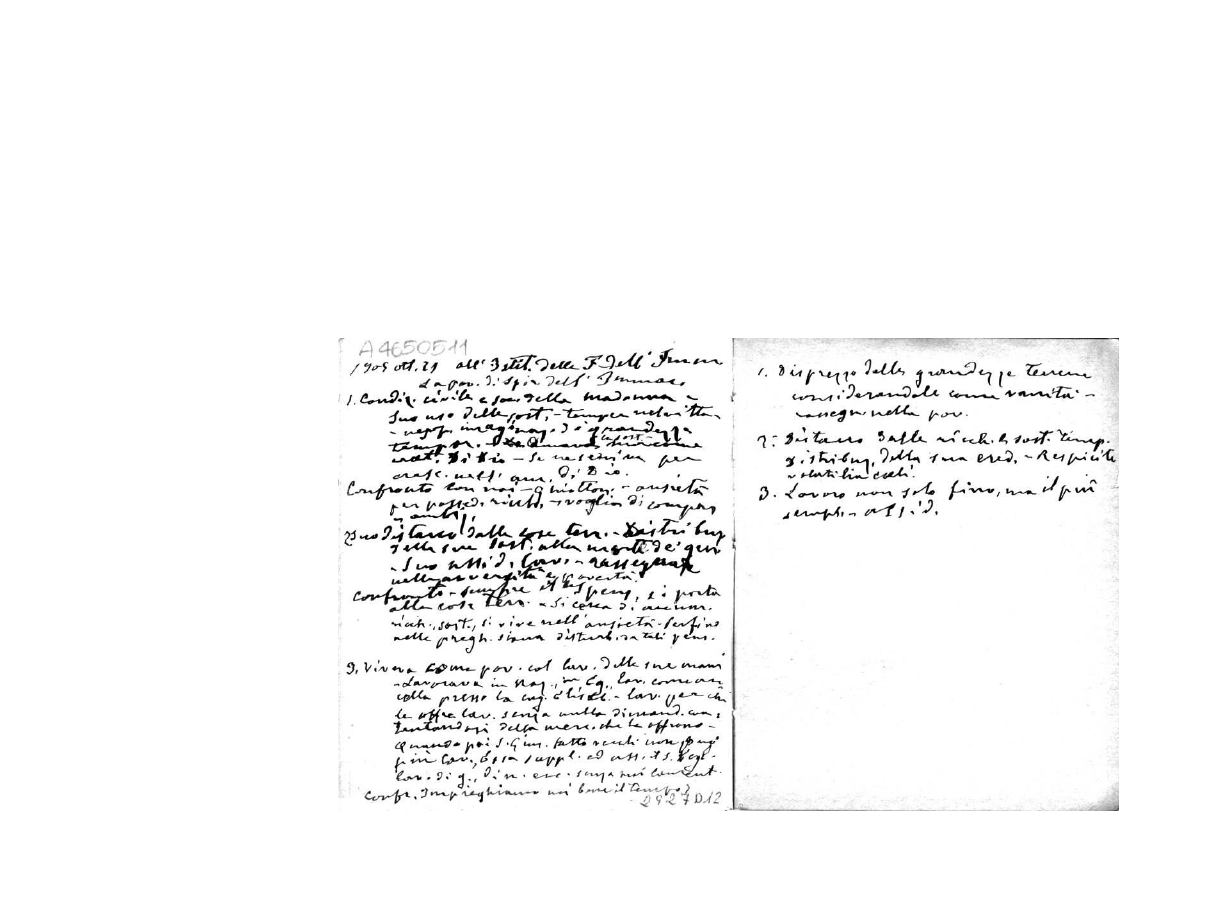 A4650511
1905 ott. 29 all' Istit. delle F. dell' Imm
La pov. di spir. dell' Immac
1. Condiz. civile e soc. della madonna -
suo uso delle sost. - temper. nel vitto
imaginaz. di grandezza
tempor.
di Dio - se ne serviva per
cresc. nell' di Dio.
Confronto con noi - ghiottoni - ansietà
per possed. ricch. - voglia di compars
2. Suo distacco dalle cose terr. - Distribuz
delle sue sost. alla morte de' geni
- Suo assid. lavo. - rassegnaz
nelle avversità e povertà.
Confronto - sempre il pens. si porta
alle cose terr. - Si cerca di accum.
ricch. sost., si vive nell' ansietà - perfino
nelle pregh. siamo disturb. da tali pens.
3. Viveva come pov. col lav. delle sue mani
- Lavorava in Naz., in Eg., lav. come
colla presso la cug. Elisab. - lav. per chi
le offre lav. senza nulla dimand. con-
tentandosi della merc. che le offrono -
Quando poi S. Gius. fatto vecchi non può
più lav., essa suppl. ed assist.
lav. di g., di n. ecc. senza mai
Confr. Impieghiamo noi bene il tempo?
2927D12
1. Disprezzo delle grandezze terrene
considerandole come vanità -
rassegn. nella pov.
2. - Distacco dalle ricch. e sost. temp.
Distribuz. della sua ered. - Respicite
volatilia coeli.
3. Lavoro non solo fino, ma il più
sempl. - assid.